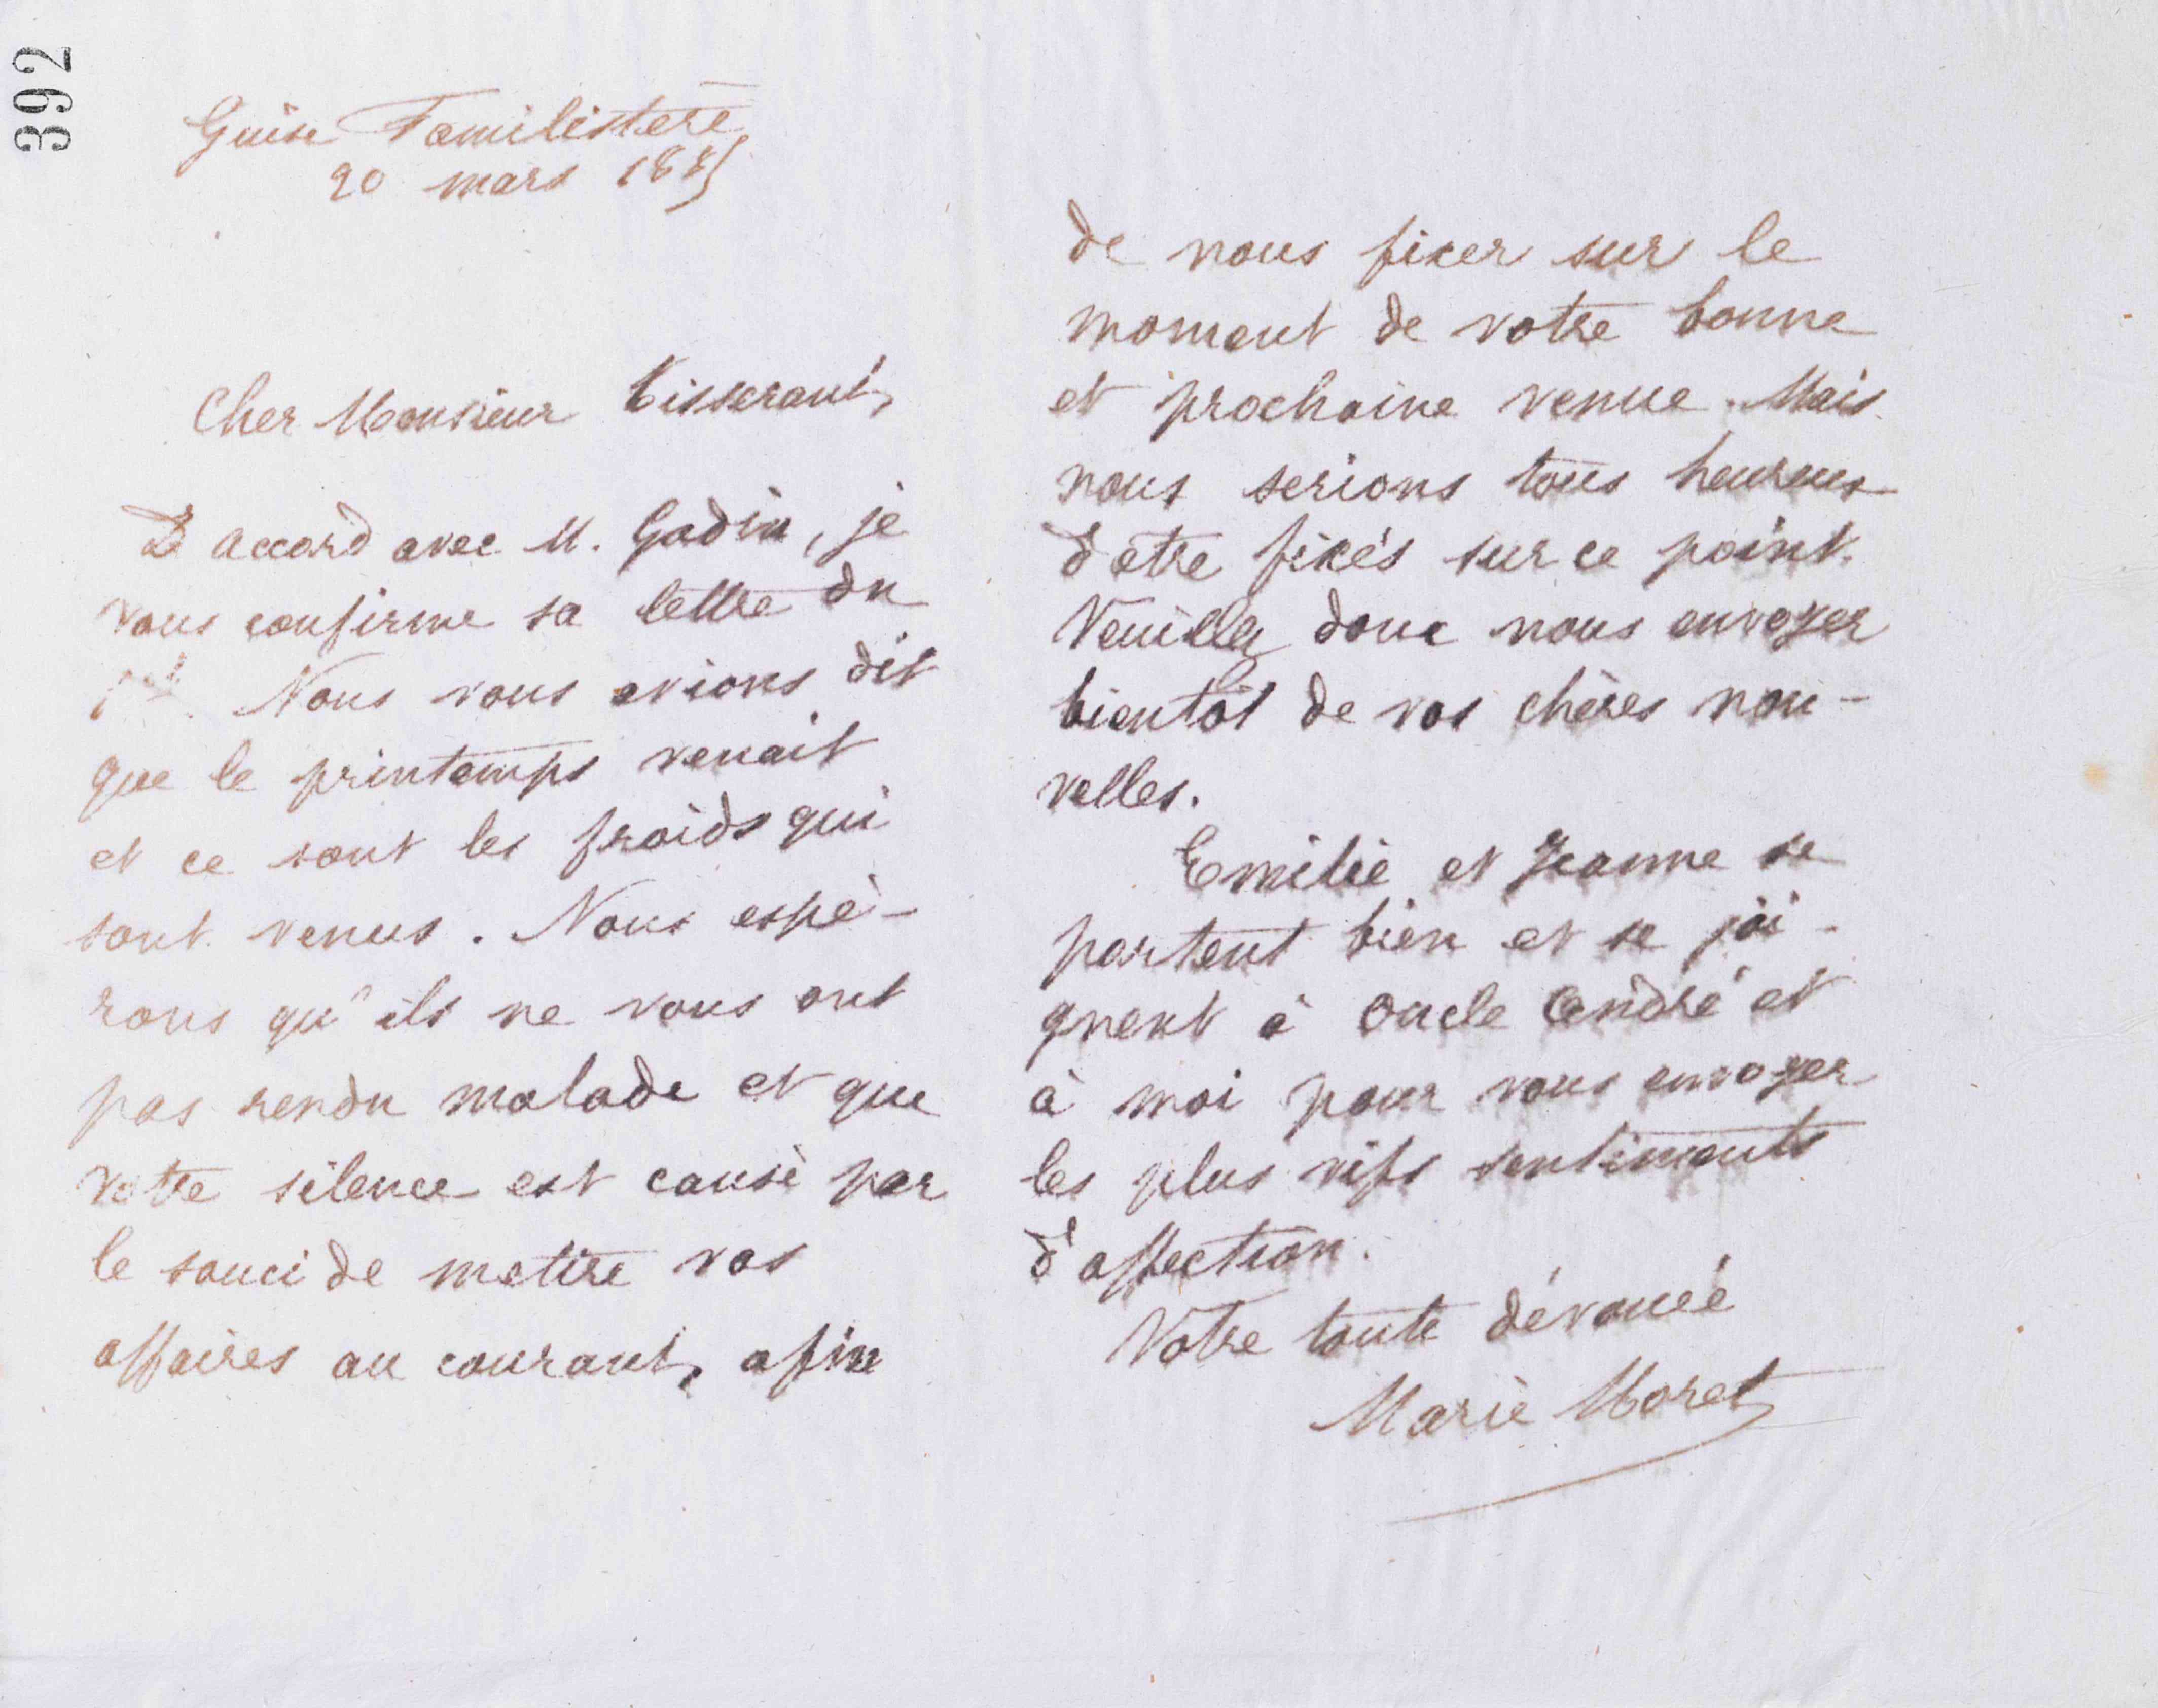 392
Guise Familistère
20 mars 1885
Cher Monsieur Tisserant,
D'accord avec M. Godin, je
vous confirme sa lettre du
Nous vous avions dit
que le printemps venait
et ce sont les froids qui
sont venus. Nous espé-
rons qu'ils ne vous ont
pas rendu malade et que
votre silence est causé par
le souci de mettre vos
affaires au courant, afin
de nous fixer sur le
moment de votre bonne
et prochaine venue. Mais
nous serions tous heureux
d'être fixés sur ce point.
Veuillez donc nous envoyer
bientôt de vos chères nou-
velles.
Emilie et Jeanne se
portent bien et se joi-
gnent à Oncle André et
à moi pour vous envoyer
les plus vifs sentiments
d'affection.
Votre toute dévouée
Marie Moret